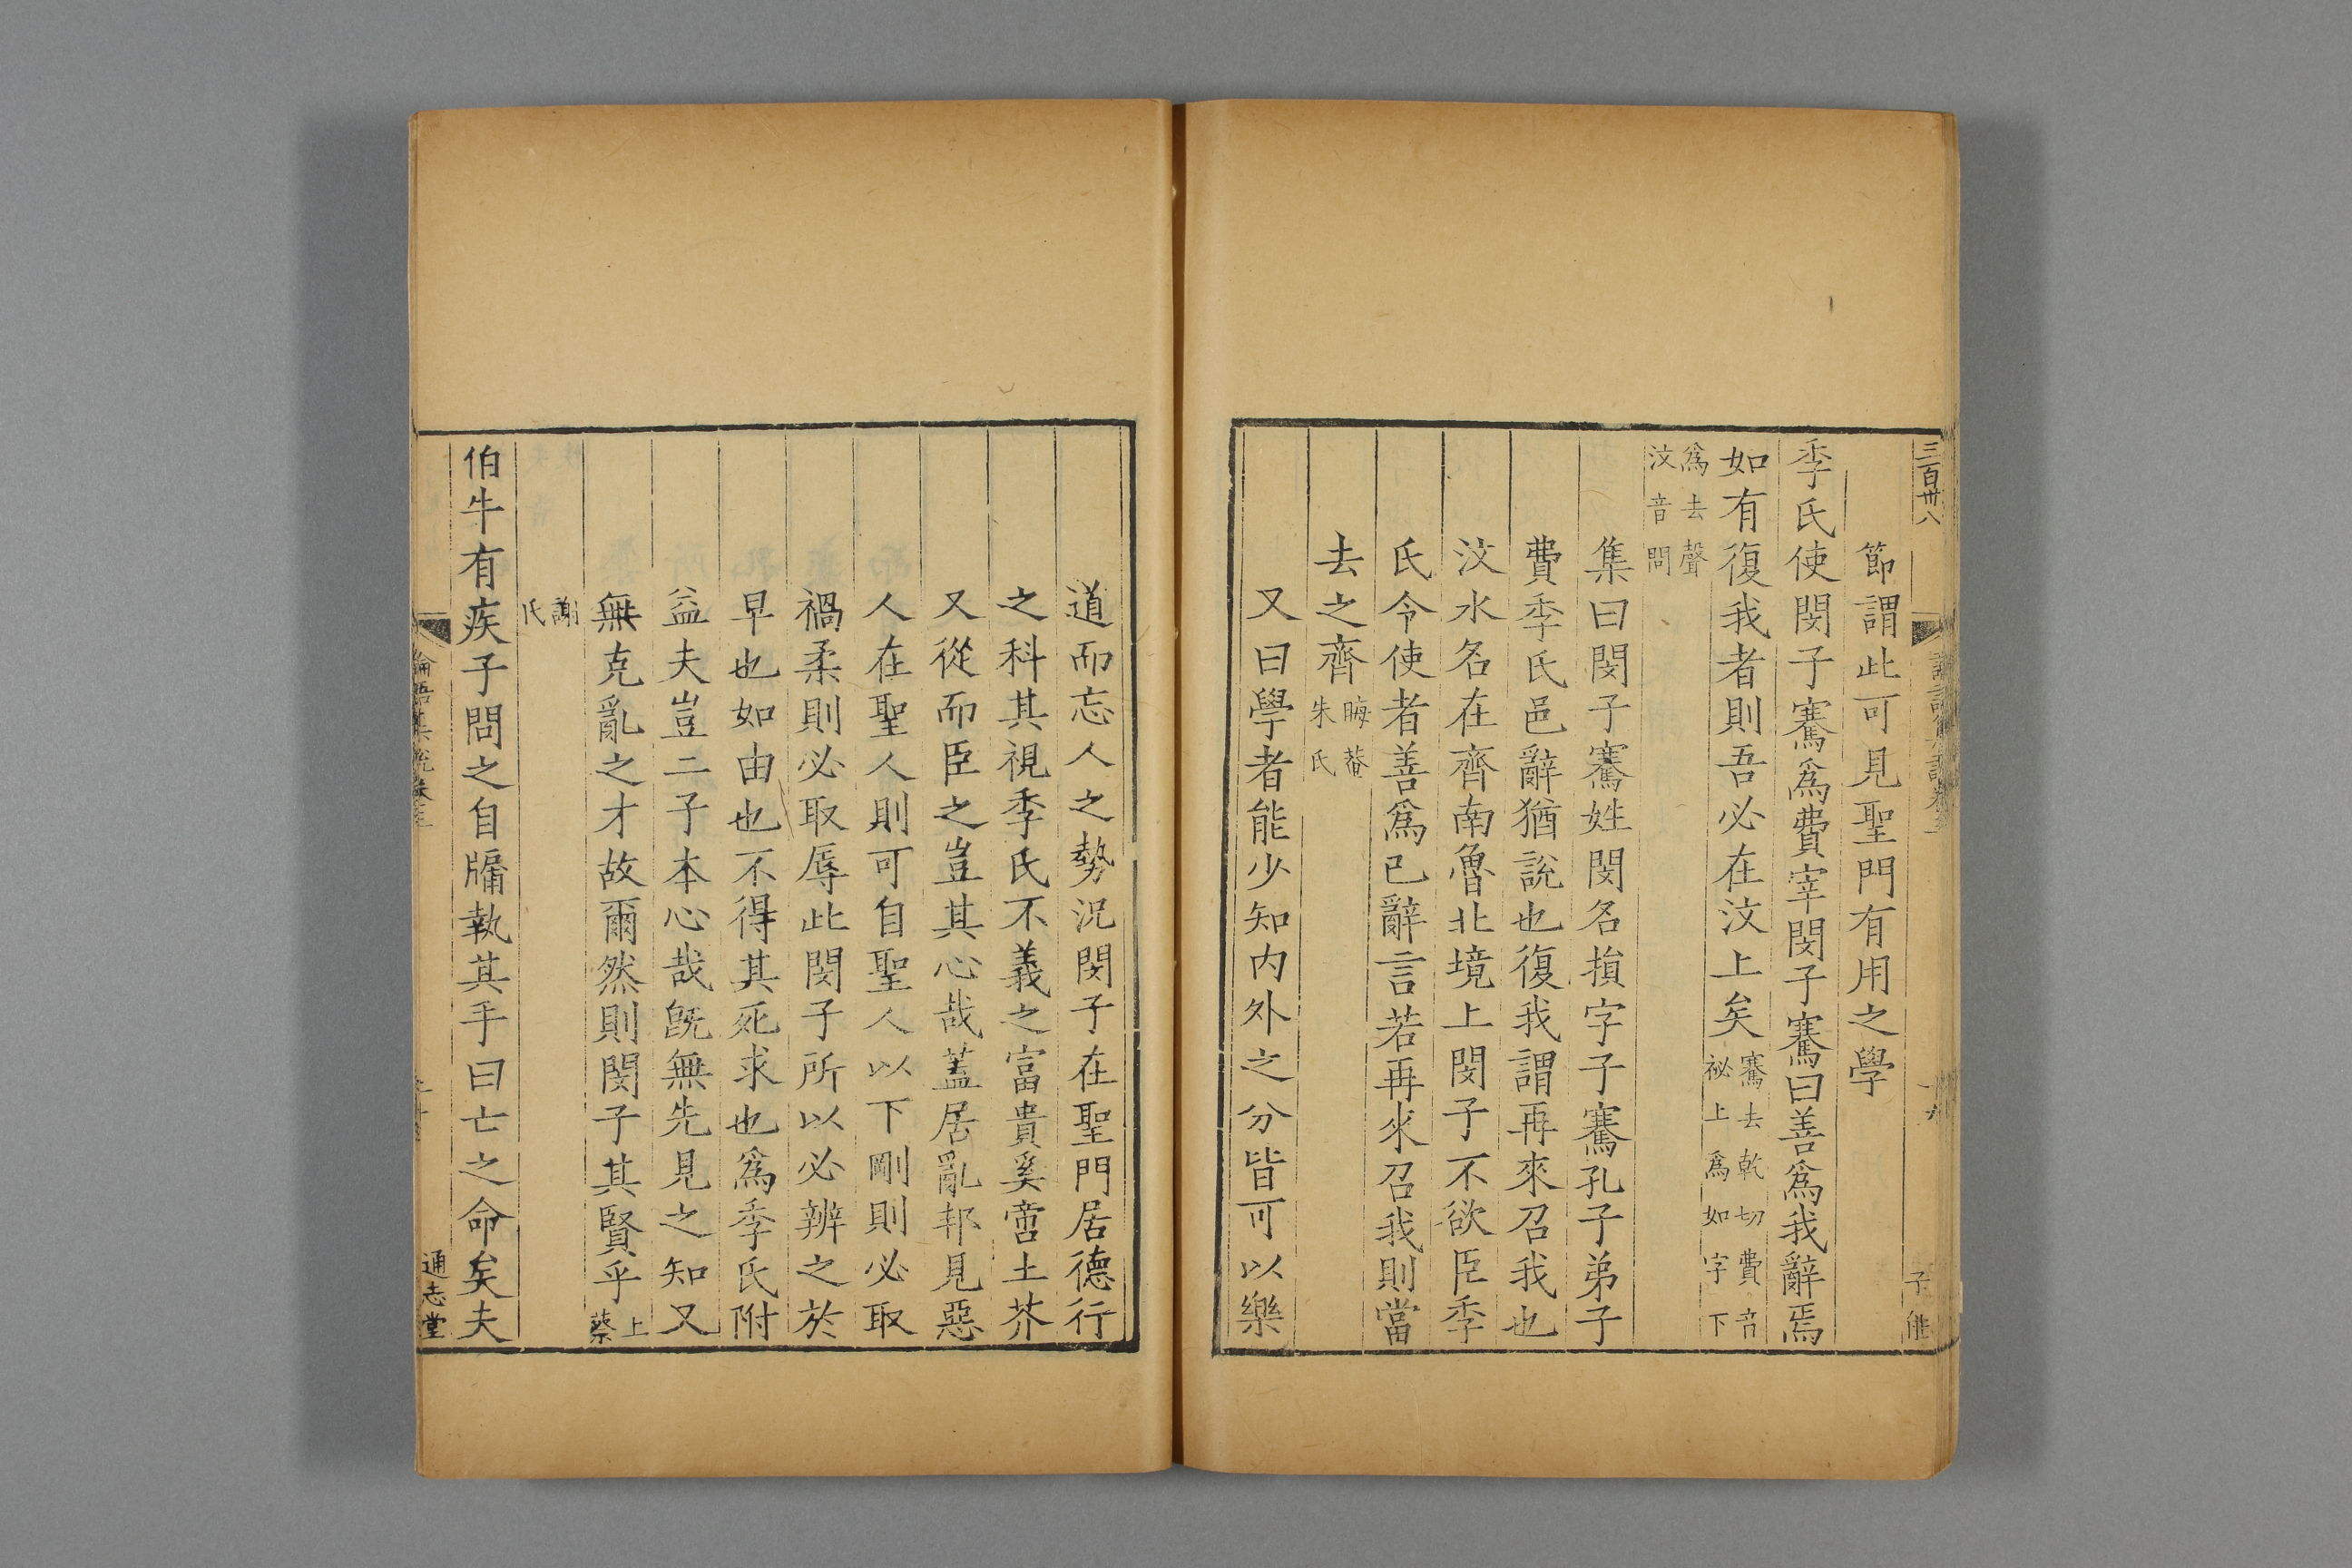 三百卅八
節謂此可見聖門有用之學
季氏使閔子騫爲費宰閔子騫曰善爲我辭焉
如有復我者則吾必在汶上矣騫去乾切費音祕上爲如字下
爲去聲汶音問
集曰閔子騫姓閔名損字子騫孔子弟子
費季氏邑辭猶說也復我謂再來召我也
汶水名在齊南魯北境上閔子不欲臣季
氏令使者善爲已辭言若再來召我則當
去之齊晦菴朱氏
又曰學者能少知内外之分皆可以樂
道而忘人之勢況閔子在聖門居德行
之科其視季氏不義之富貴奚啻土芥
又從而臣之豈其心哉蓋居亂邦見惡
人在聖人則可自聖人以下剛則必取
禍柔則必取辱此閔子所以必辨之於
早也如由也不得其死求也爲季氏附
益夫豈二子本心哉旣無先見之知又
無克亂之才故爾然則閔子其賢乎上蔡
謝氏
伯牛有疾子問之自牖執其手曰亡之命矣夫
論語集說卷三
通志堂